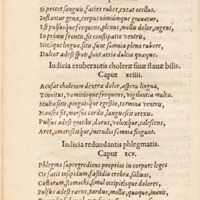 Si peccet sanguis, facies rubet, extat ocellus.
Inflantur genæ, corpus nimiumque grauatur,
Est pulsusque frequens, plenus, mollis, dolor, ingens,
In primis frontis, fit constipatio ventris,
Siccaque lingua, sitis, sunt somnia plena rubore,
Dulcor adest sputi, sunt acria dulcia quæque.
Indicia exuberantis choleræ siue flauæ bilis.
Caput xciiii.
Accusat choleram dextræ dolor, aspera lingua,
Tinnitus, vomitusque frequens, vigilantia multa.
Multa sitis, pinguisque egestio, tormina ventris,
Nausea fit, morsus cordis, languescit orexis,
Pulsus adest gracilis, durus, veloxque, calescens,
Aret, amarescitque, incendia somnia fingunt.
Indicia redundantis phlegmatis.
Caput xcv.
Phlegma supergrediens proprias in corpore leges
Os facit insipidum, fastidia crebra, saliuas,
Costarum, stomachi, simul occipitisque dolores,
Pulsus adest rarus, tardus, mollis, quoque inanis,